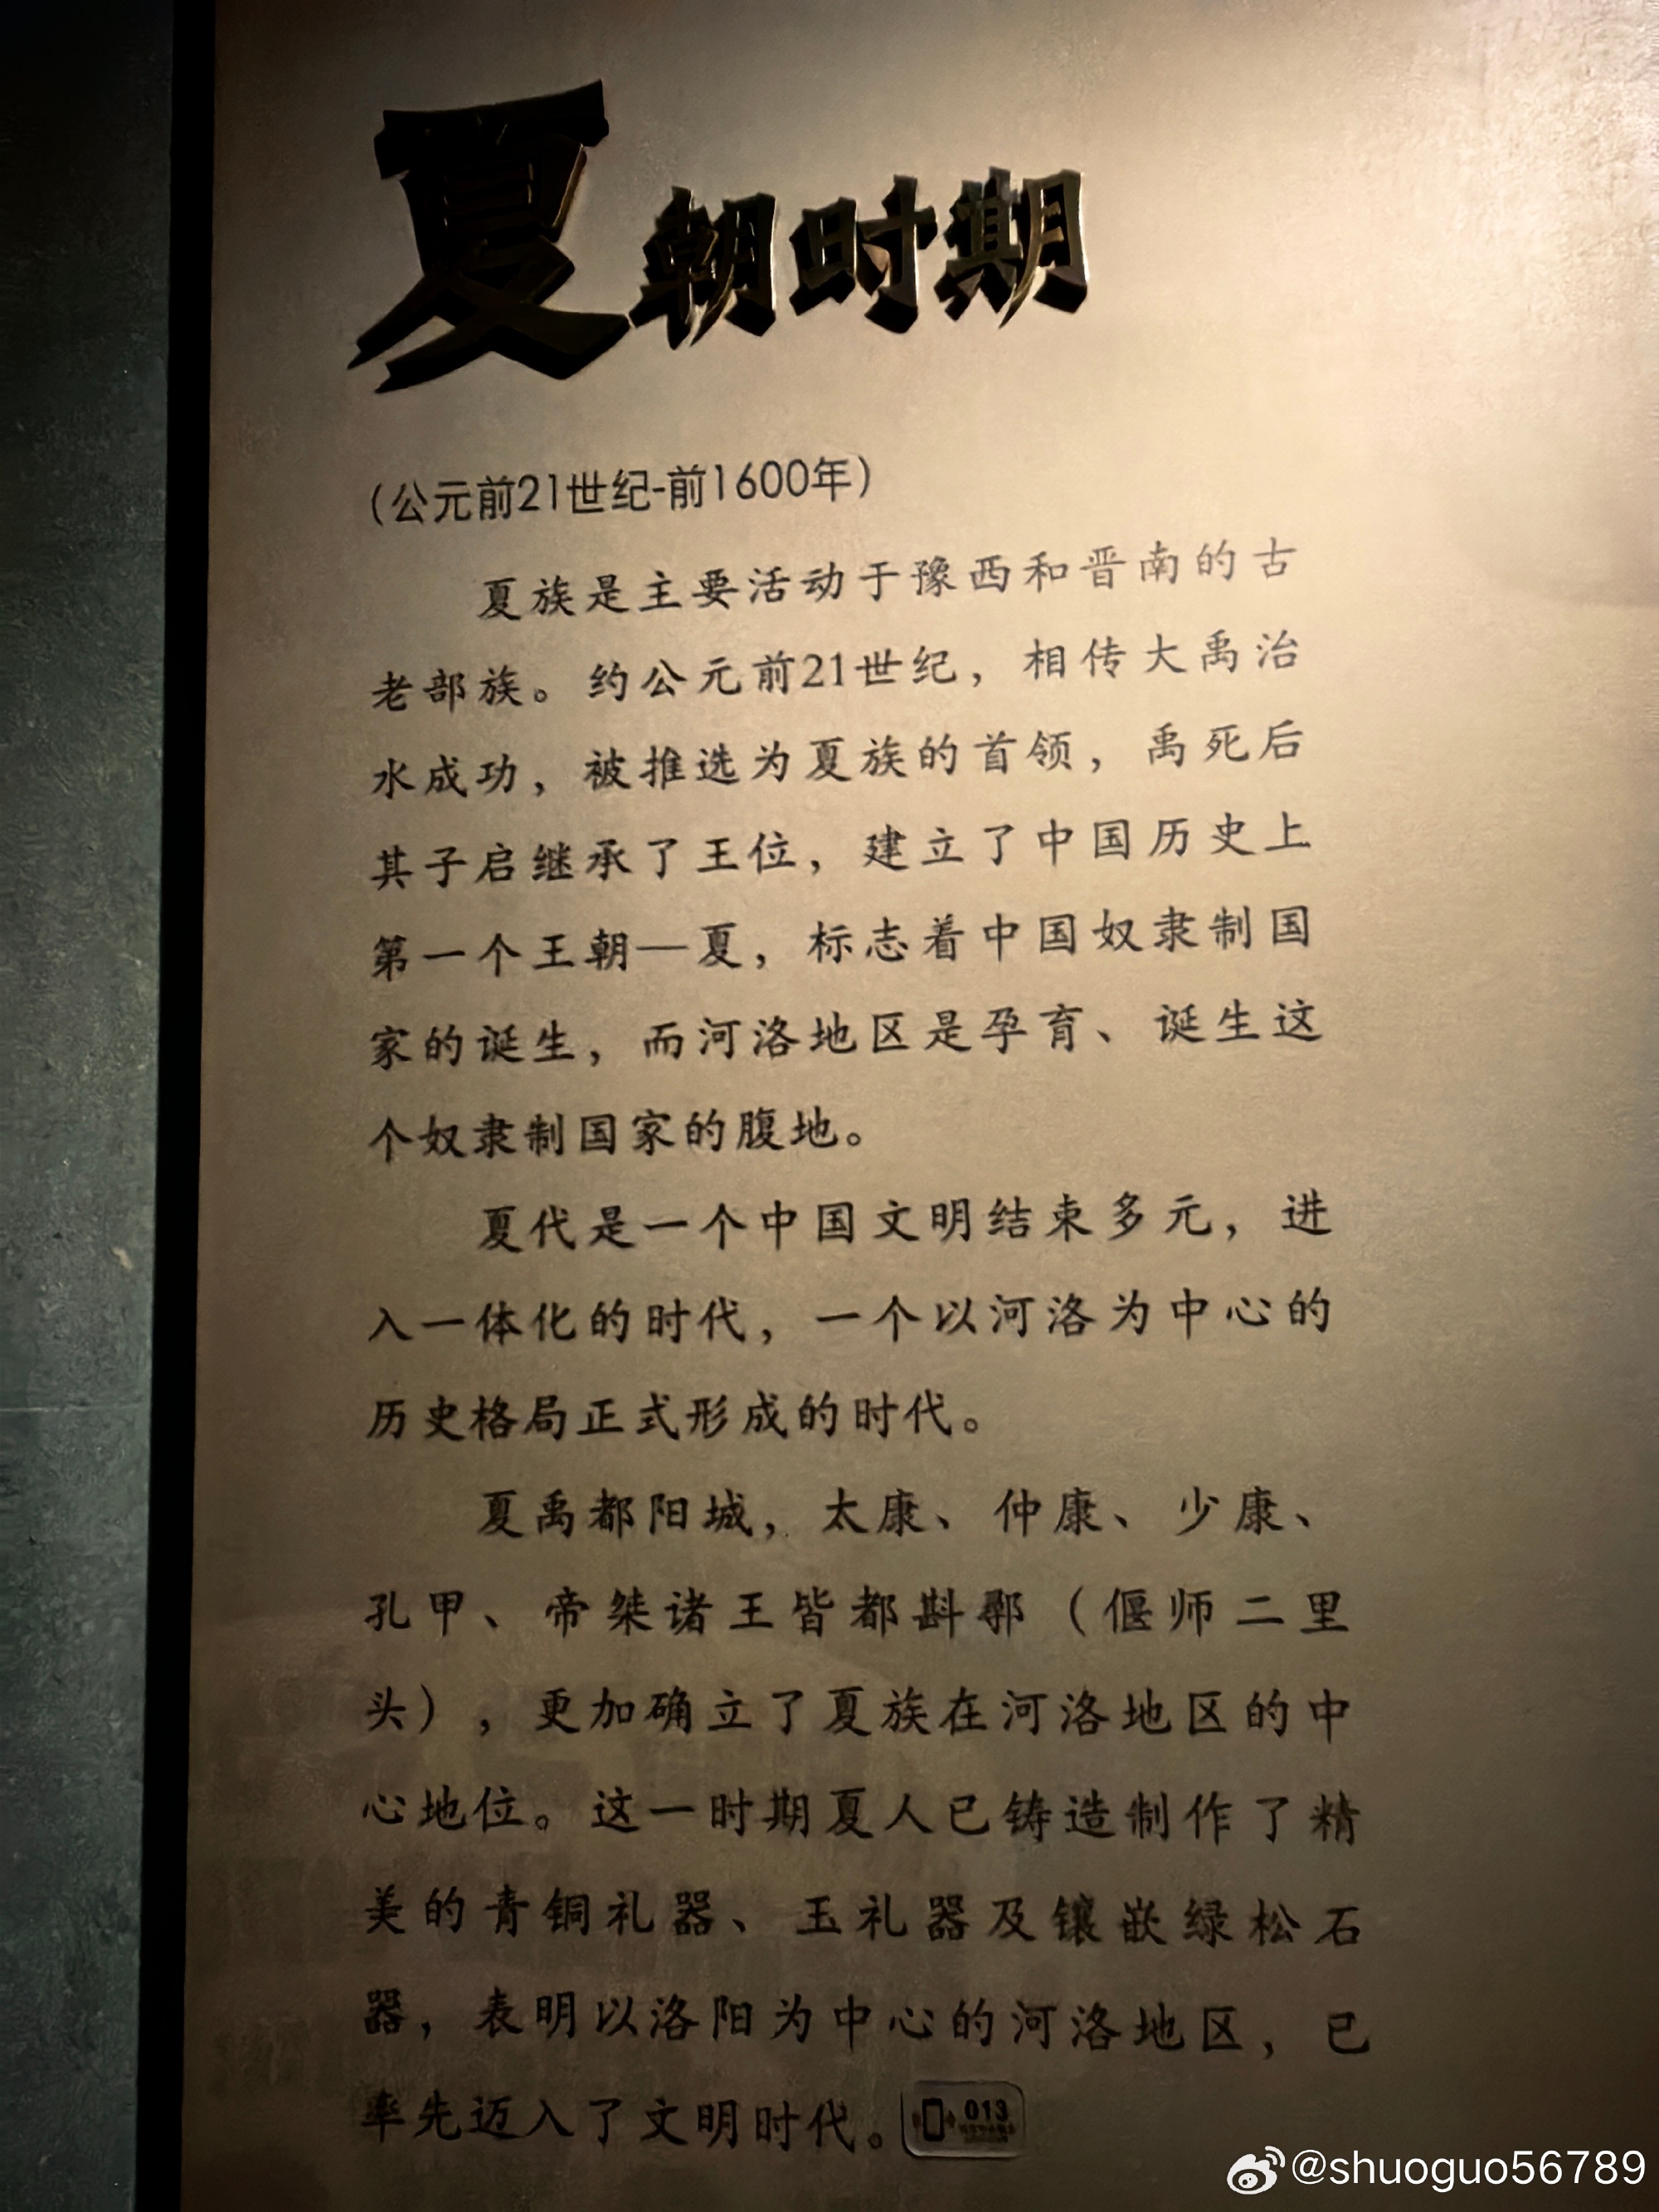 夏朝时期
（公元前21世纪-前1600年）
夏族是主要活动于豫西和晋南的古
老部族。约公元前21世纪，相传大禹治
水成功，被推选为夏族的首领，禹死后
其子启继承了王位，建立了中国历史上
第一个王朝—夏，标志着中国奴隶制国
家的诞生，而河洛地区是孕育、诞生这
个奴隶制国家的腹地。
夏代是一个中国文明结束多元，进
入一体化的时代，一个以河洛为中心的
历史格局正式形成的时代。
夏禹都阳城，太康、仲康、少康、
孔甲、帝桀诸王皆都斟鄩（偃师二里
头），更加确立了夏族在河洛地区的中
心地位。这一时期夏人已铸造制作了精
美的青铜礼器、玉礼器及镶嵌绿松石
器，表明以洛阳为中心的河洛地区，已
率先迈入了文明时代。
013
@shuoguo56789